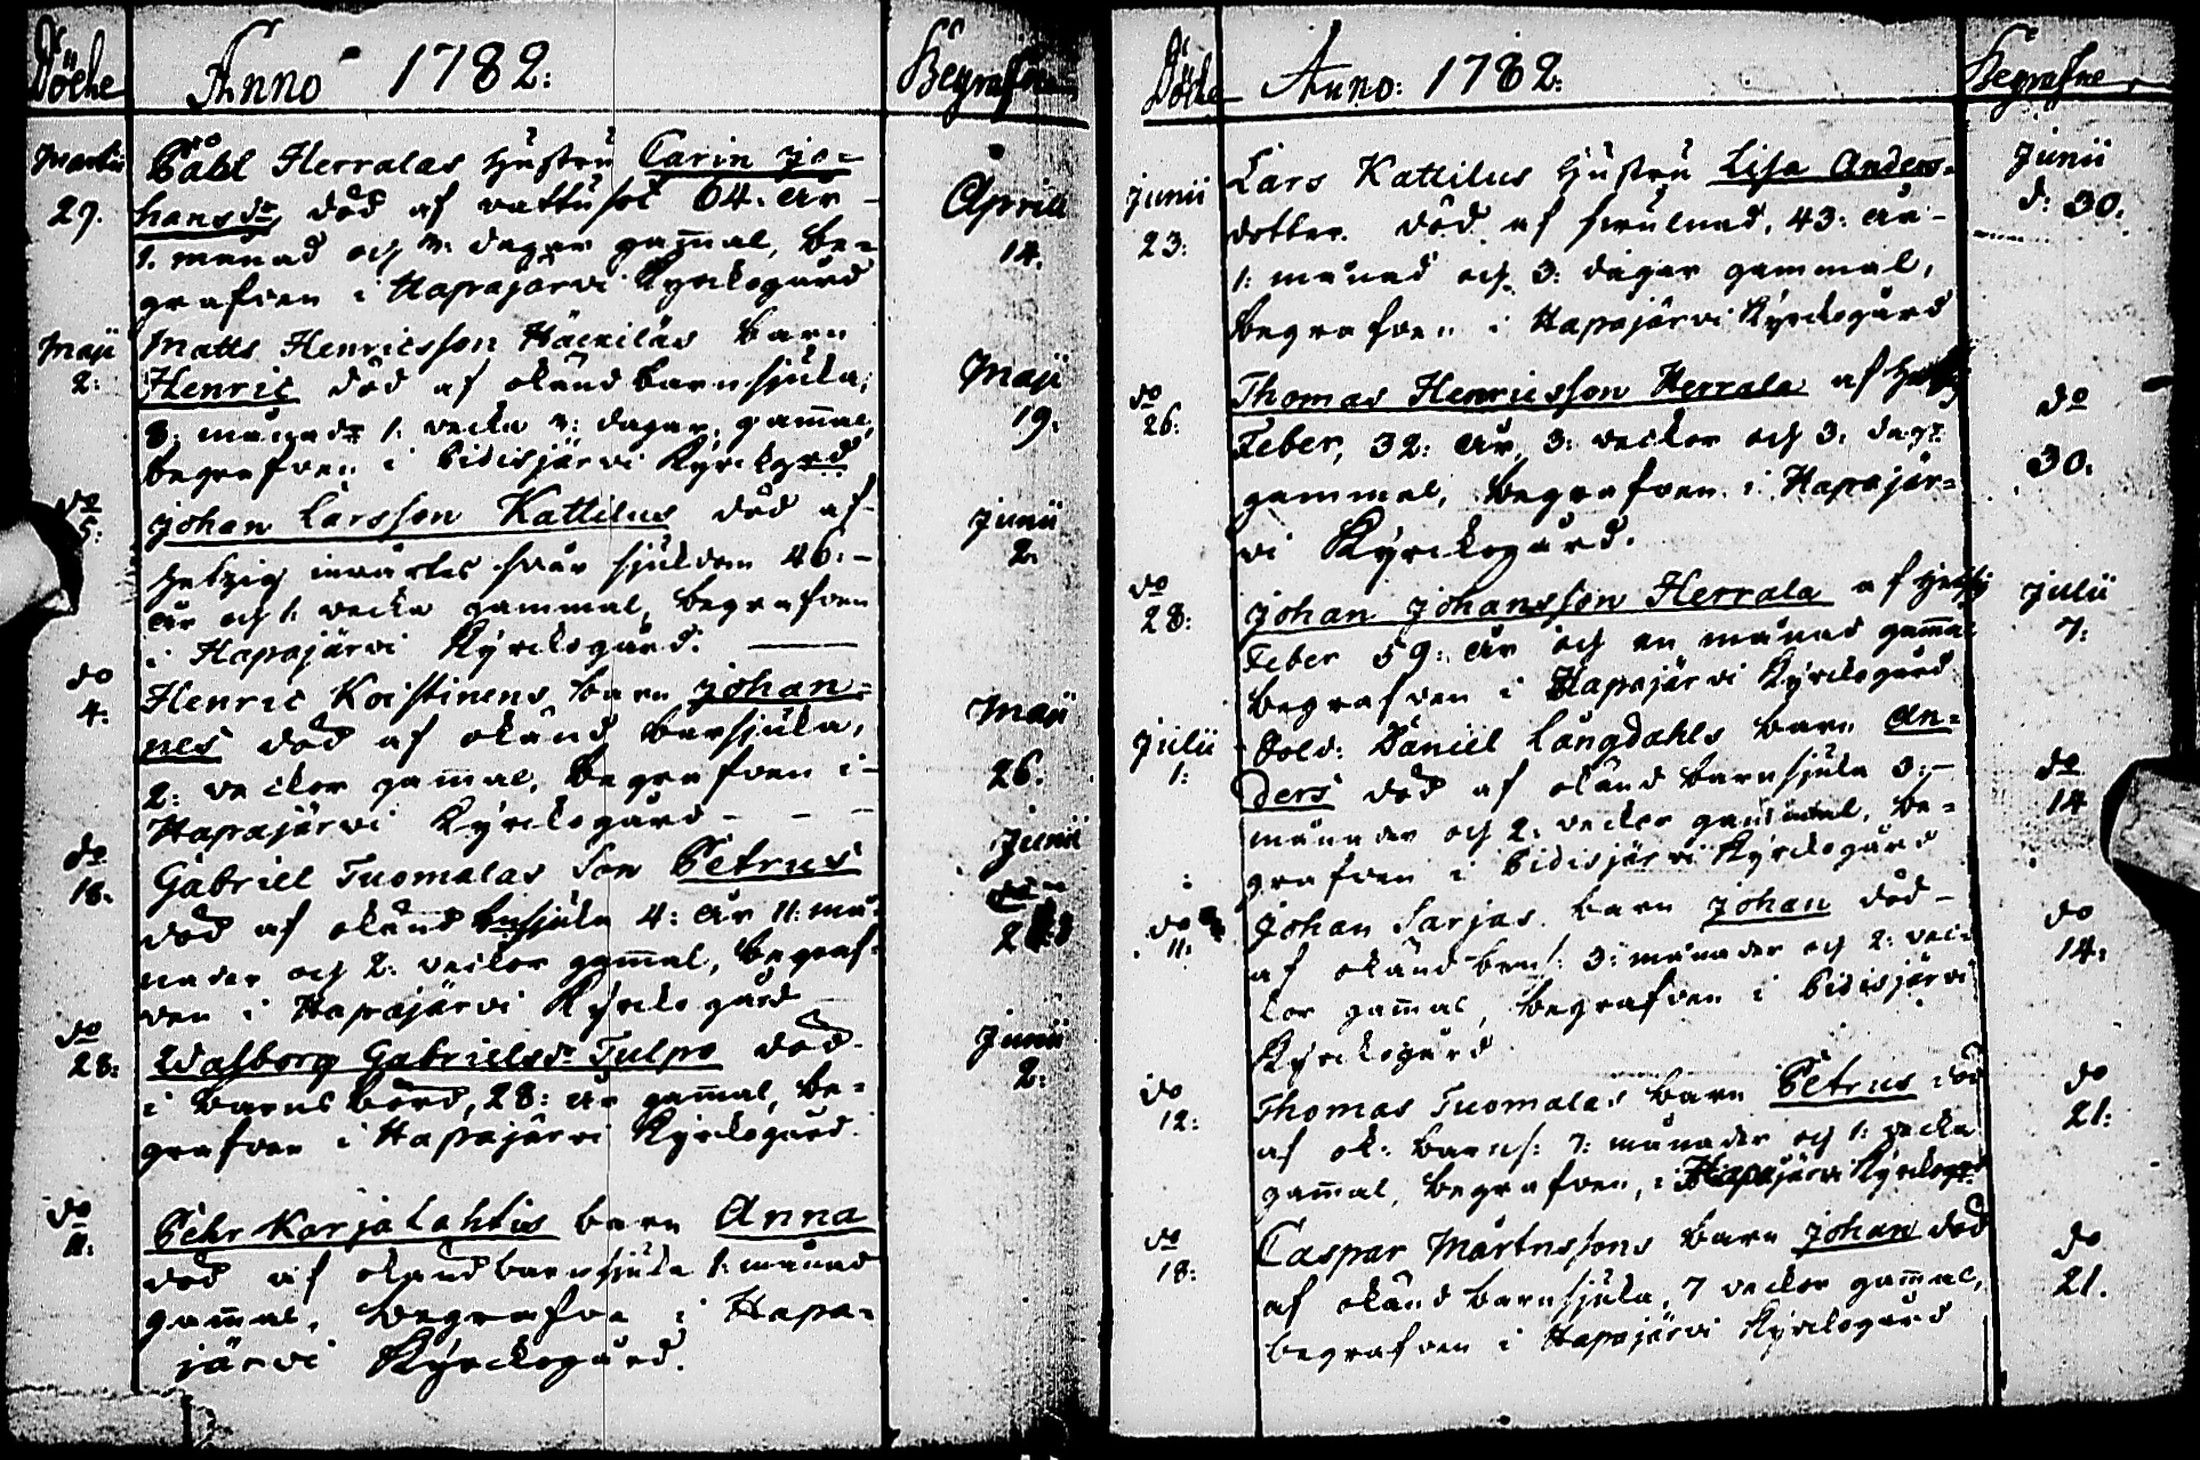 Döde Anno 1782: Begrafne
Martii Påhl Herralas hustru Carin Jo=
29. hansdr död af vattusot 64. år April
1. månad och 3. dagar gammal, be= 14.
grafven i Hapajärvi Kyrckogård
Maji Matts Henricsson Häckiläs barn
2: Henric död af okänd barnsjuka; Maji
8: månadr 1: vecka 3: dagar, gam̄al, 19.
begrafven i Pidisjärvi Kyrckogrd
do Johan Larsson Kattilus död af Junii
5: hetzig invärtes svår sjukdom 46:- 2.
år och 1: vecka gammal, begrafven
i Hapajärvi Kyrckogård.
do Henric Koistinens barn Johan=
4: nes död af okänd barsjuka, Maji
2: veckor gam̄al, begrafven i 26.
Hapajärvi Kyrckogård - - -
do Gabriel Tuomalas Son Petrus Junii
18. död af okänd bnsjuka 4: år 11: må=
nader och 2: veckor gam̄al, begraf=
ven i Hapajärvi Kyrckogård
do Walborg Gabrielsdr Tulpo död Junii
28: i barnsbörd, 28: år gam̄al, be= 2:
grafven i Hapajärvi Kyrckogård.
do Pehr Karjalahtis barn Anna
11: död af okänd barnsjuka 1: månad
gam̄al, begrafve i Hapa=
järvi Kyrckogård.
Döde Anno: 1782: Begrafne
Junii Lars Kattilus hustru Lisa Anders= Junii
23: dotter död af 43: år - d: 30:
1: månad och 3: dagar gammal,
begrafven i Hapajärvi Kyrckogård
do Thomas Henricsson Herrala af do
26: Feber, 32: år, 3: veckor och 3: dagr 30.
gammal, begrafven i Hapajär=
vi Kyrckogård.
do Johan Johansson Herrala af hetsig Julii
28: Feber 59: år och en månad gam̄al 7:
begrafven i Hapajärvi Kyrckogård
Julii Sold: Daniel Långdahls barn An= do
1: ders död af okänd barnsjuka 3:- 14
månader och 2: veckor gammal, be=
grafven i Pidisjärvi Kyrckogård
do Johan Sarjas barn Johan död - do
11: af okänd barns: 3: månader och 2: vec= 14:
kor gam̄al, begrafven i Pidisjärvi
Kyrckogård
do Thomas Tuomalas barn Petrus död do
12: af ok: barns: 7: månader och 1: vecka 21:
gam̄al, begrafven, i Hapajärvi Kyrckogrd
do Caspar Mårtnssons barn Johan död do
18: af okänd barnsjuka, 7 veckor gam̄al, 21.
begrafven i Hapajärvi Kyrckogård